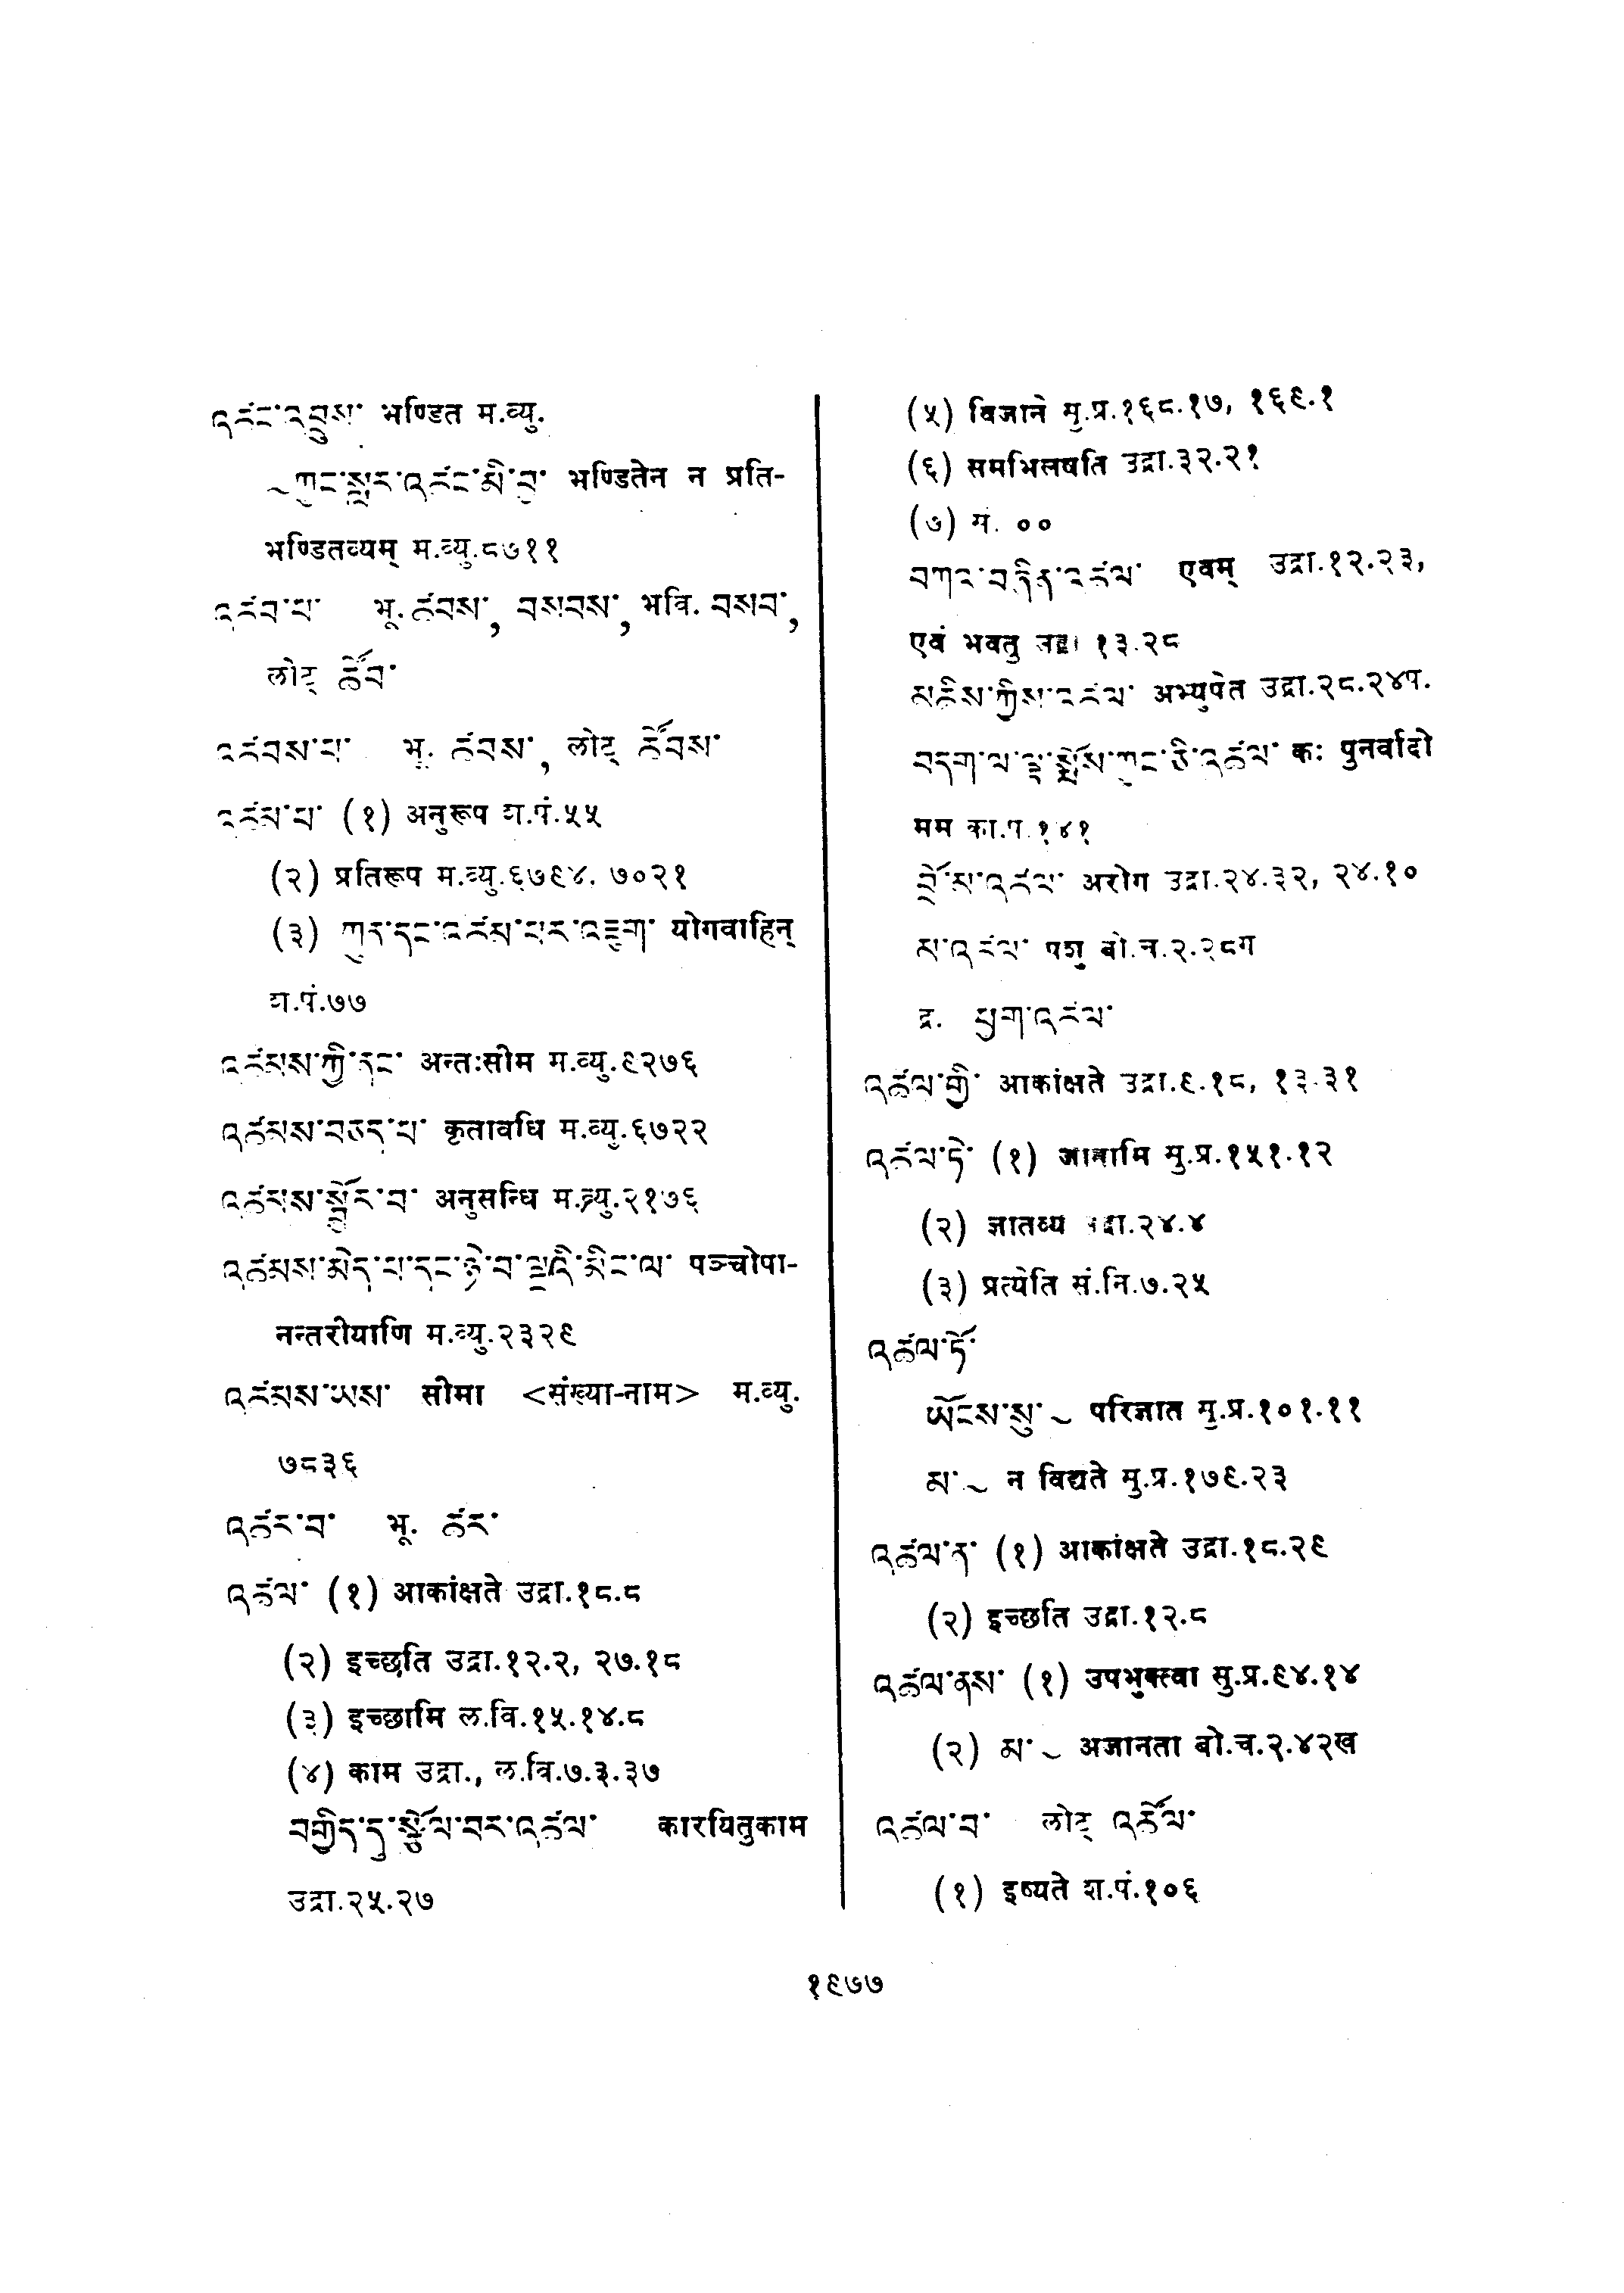 འཚང་འབྲུས་ भण्डित म.व्यु.
~ཀྱང་སླར་འཚང་མི་བྱ་ भण्डितेन न प्रति-
भण्डितव्यम् म.व्यु.८७११
འཚབ་པ་ भू. ཚབས་, བསབས་, भवि. བསབ་,
लोट् ཚོབ་
འཚབས་པ་ भू. ཚབས་, लोट् ཚོབས་
འཚམ་པ་ (१) अनुरूप श.पं.५५
(२) प्रतिरूप म.व्यु.६७९४, ७०२१
(३) ཀུན་དང་འཚམ་པར་འཇུག་ योगवाहिन्
श.पं.७७
འཚམས་ཀྱི་ནང་ अन्तःसीम म.व्यु.९२७६
འཚམས་བཅད་པ་ कृतावधि म.व्यु.६७२२
འཚམས་སྦྱོར་བ་ अनुसन्धि म.व्यु.२१७६
འཚམས་མེད་པ་དང་ཉེ་བ་ལྔའི་མིང་ལ་ पञ्चोपा-
नन्तरीयाणि म.व्यु.२३२९
འཚམས་ཡས་ सीमा <संख्या-नाम> म.व्यु.
७८३६
འཚར་བ་ भू. ཚར་
འཚལ་ (१) आकांक्षते उद्रा.१८.८
(२) इच्छति उद्रा.१२.२, २७.१८
(३) इच्छामि ल.वि.१५.१४.८
(४) काम उद्रा., ल.वि.७.३.३७
བགྱིད་དུ་སྩོལ་བར་འཚལ་ कारयितुकाम
उद्रा.२५.२७
(५) विजाने मु.प्र.१६८.१७, १६९.१
(६) समभिलषति उद्रा.३२.२१
(७) मं. ००
བཀའ་བཞིན་འཚལ་ एवम् उद्रा.१२.२३,
एवं भवतु उद्रा १३.२८
མཆིས་ཀྱིས་འཚལ་ अभ्युपेत उद्रा.२८.२४प.
བདག་ལ་ལྟ་སྨོས་ཀྱང་ཅི་འཚལ་ कः पुनर्वादो
मम का.प.१४१
བྲོ་མ་འཚལ་ अरोग उद्रा.२४.३२, २४.१०
མ་འཚལ་ पशु बो.च.२.२८ग
द्र. ཕྱག་འཚལ་
འཚལ་གྱི་ आकांक्षते उद्रा.९.१८, १३.३१
འཚལ་ཏེ་ (१) जानामि मु.प्र.१५१.१२
(२) ज्ञातव्य उद्रा.२४.४
(३) प्रत्येति सं.नि.७.२५
འཚལ་ཏོ་
ཡོངས་སུ་~ परिज्ञात मु.प्र.१०१.११
མ་~ न विद्यते मु.प्र.१७९.२३
འཚལ་ན་ (१) आकांक्षते उद्रा.१८.२९
(२) इच्छति उद्रा.१२.८
འཚལ་ནས་ (१) उपभुक्त्वा सु.प्र.९४.१४
(२) མ་~ अजानता बो.च.२.४२ख
འཚལ་བ་ लोट् འཚོལ་
(१) इष्यते श.पं.१०६
१९७७